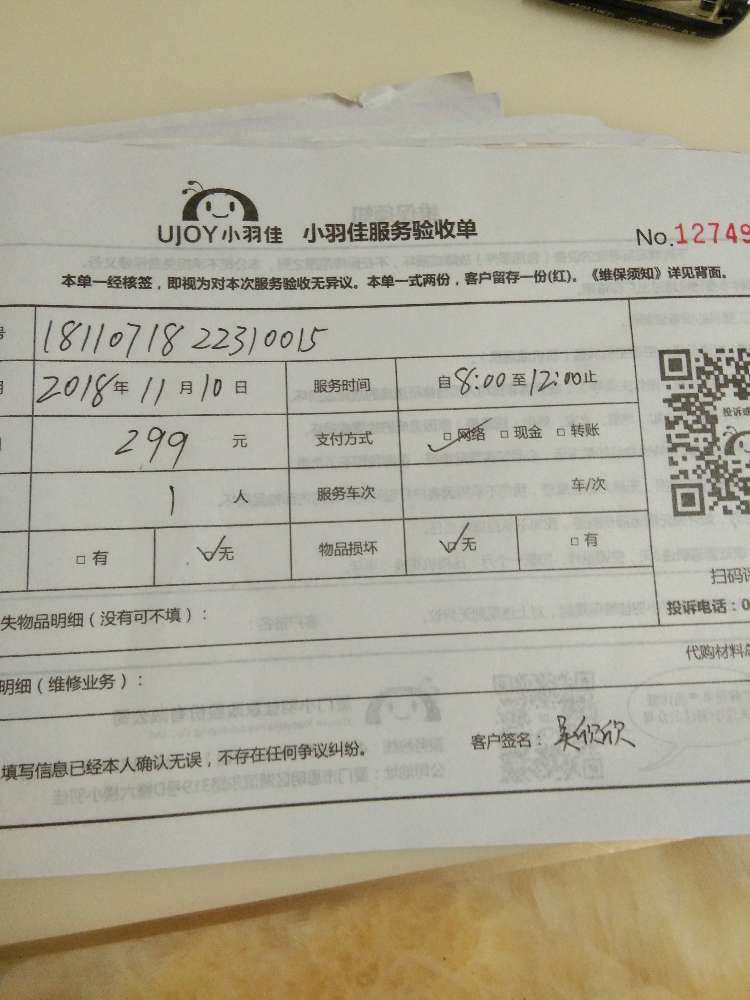 UJOY小羽佳 小羽佳服务验收单
No.12749
本单一经核签，即视为对本次服务验收无异议。本单一式两份，客户留存一份(红)。《维保须知》详见背面。
号 18110718 22310015
2018年11月10日 服务时间 自8:00至12:00止
299元 支付方式 □网络 □现金 □转账
投诉或
1人 服务车次 车/次
□有 □无 物品损坏 □无 □有
扫码
失物品明细（没有可不填）：
投诉电话：0
代购材料总
明细（维修业务）：
填写信息已经本人确认无误，不存在任何争议纠纷。 客户签名：吴欣欣